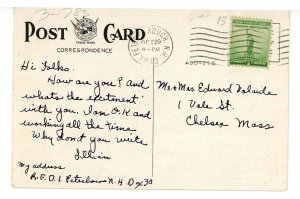 3-783
POST CARD
TRADE MARK
CORRESPONDENCE
Hi Folks.
How are you? And
whats the excitement
with you. I am O.K. and
working all the time
Why Don't you write
Lillian
My address
R.F.D. 1 Peterboro N.H
OCT 29
4-PM
N.H.
13
ADDRESS
Mr & Mrs Edward
1 Vale St.
Chelsea Mass